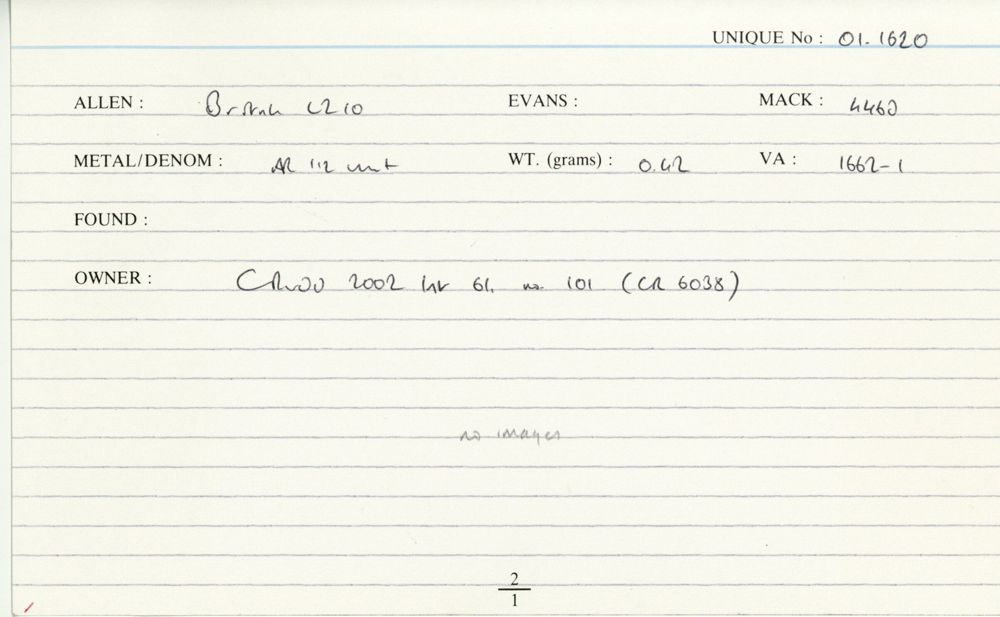 UNIQUE No : 01.1620
ALLEN : British LZ10 EVANS : MACK :
METAL/DENOM : AR 1/2 unit WT. (grams) : 0.42 VA : 1662-1
FOUND :
OWNER : 2002 61, no. 101 (CR 6038)
no images
2
1